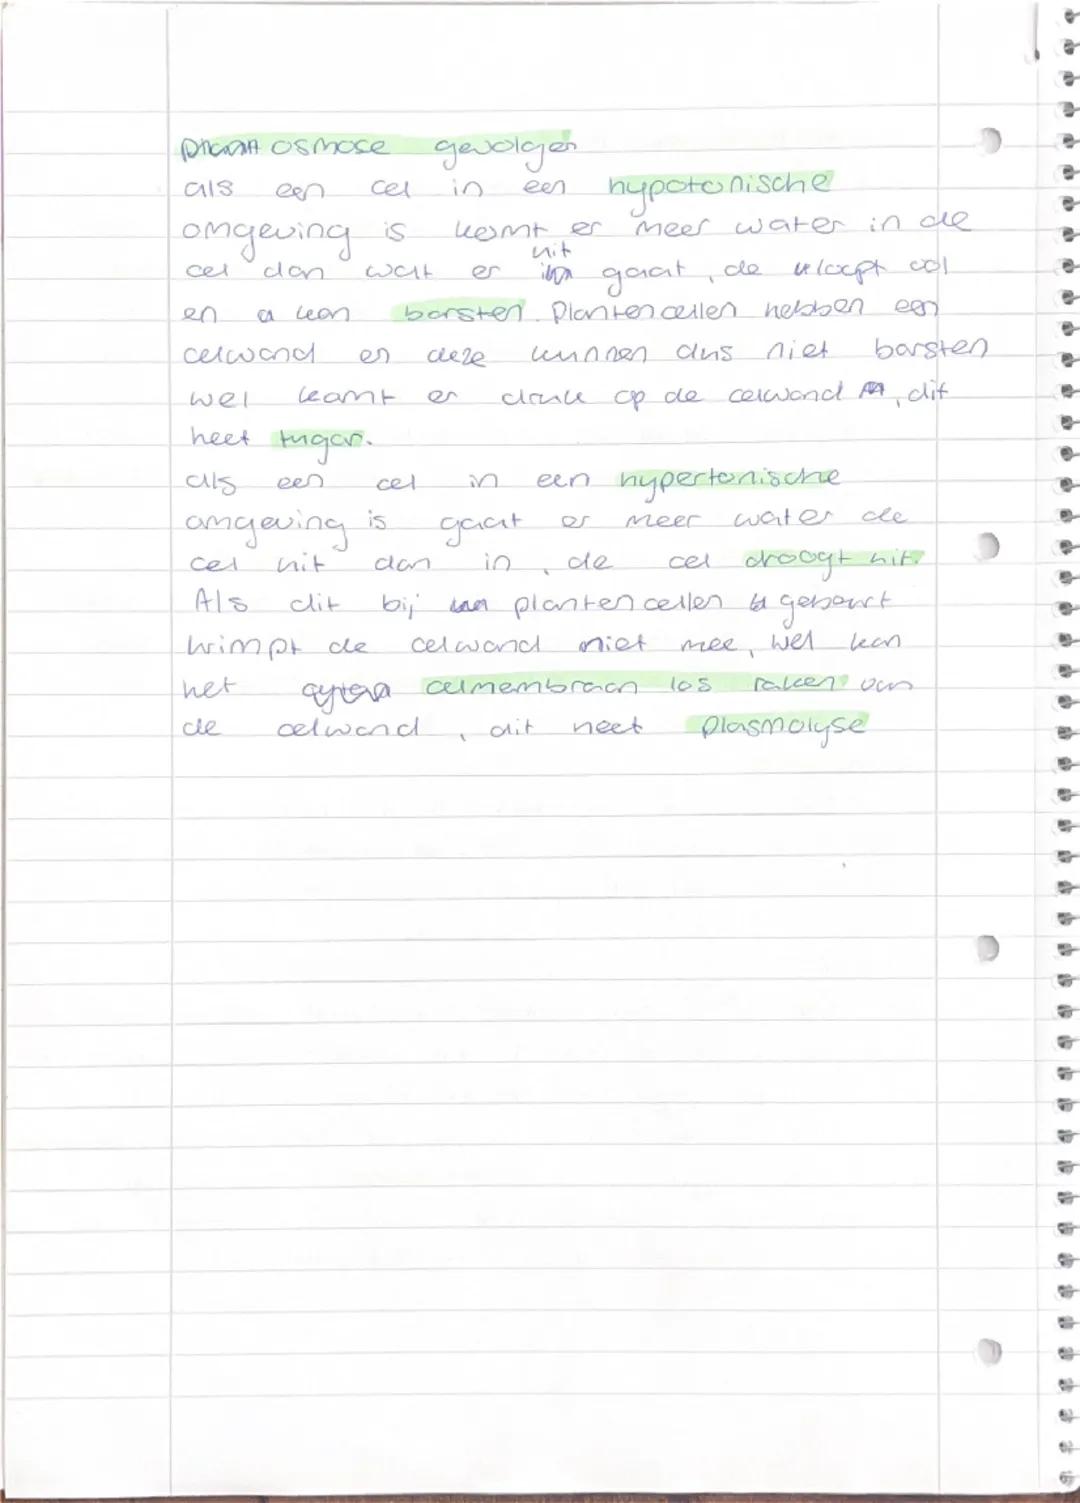 osmose gevolgen
als een cel in een hypotonische
omgeving is komt er meer water in de
cel dan wat er uit gaat, de loopt vol
en kan barsten. Plantencellen hebben een
celwand en deze kunnen dus niet barsten
wel komt er druk op de celwand, dit
heet tugor.
als een cel in een hypertonische
omgeving is gaat er meer water de
cel uit dan in, de cel droogt uit.
Als dit bij plantencellen gebeurt
krimpt de celwand niet mee, wel kan
het celmembraan los raken van
de celwand, dit heet Plasmolyse